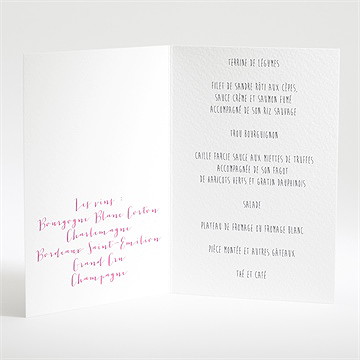 Les vins :
Bourgogne Blanc Corton
Charlemagne
Bordeaux Saint-Emilion
Grand Cru
Champagne
TERRINE DE LÉGUMES
FILET DE SANDRE RÔTI AUX CÈPES,
SAUCE CRÈME ET SAUMON FUMÉ
ACCOMPAGNÉ DE SON RIZ SAUVAGE
TROU BOURGUIGNON
CAILLE FARCIE SAUCE AUX MIETTES DE TRUFFES
ACCOMPAGNÉE DE SON FAGOT
DE HARICOTS VERTS ET GRATIN DAUPHINOIS
SALADE
PLATEAU DE FROMAGE OU FROMAGE BLANC
PIÈCE MONTÉE ET AUTRES GÂTEAUX
THÉ ET CAFÉ